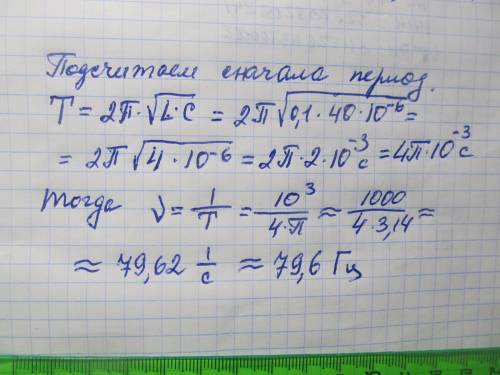 Подсчитаем сначала период.
T = 2π·√(L·C) = 2π√(0,1·40·10⁻⁶) =
= 2π√(4·10⁻⁶) = 2π·2·10⁻³с = 4π·10⁻³с
Тогда ν = 1/T = 10³/(4·π) ≈ 1000/(4·3,14) ≈
≈ 79,62 1/с ≈ 79,6 Гц